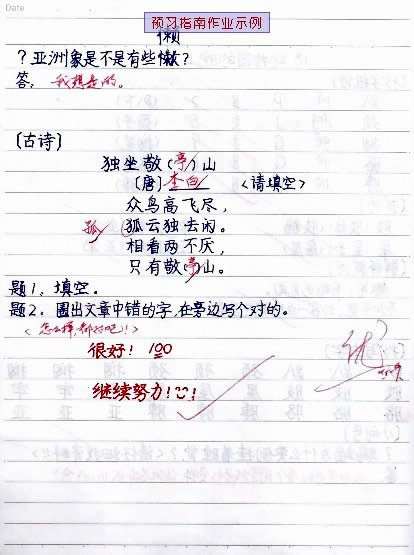 Date
预习指南作业示例
懒
？亚洲象是不是有些懒？
答：我想是的。
〔古诗〕
独坐敬（亭）山
〔唐〕李白 〈请填空〉
众鸟高飞尽，
孤 狐云独去闲。
相看两不厌，
只有敬（亭）山。
题1、填空。
题2、圈出文章中错的字，在旁边写个对的。
〈怎么样，都对吧！〉
很好！100
优
继续努力！